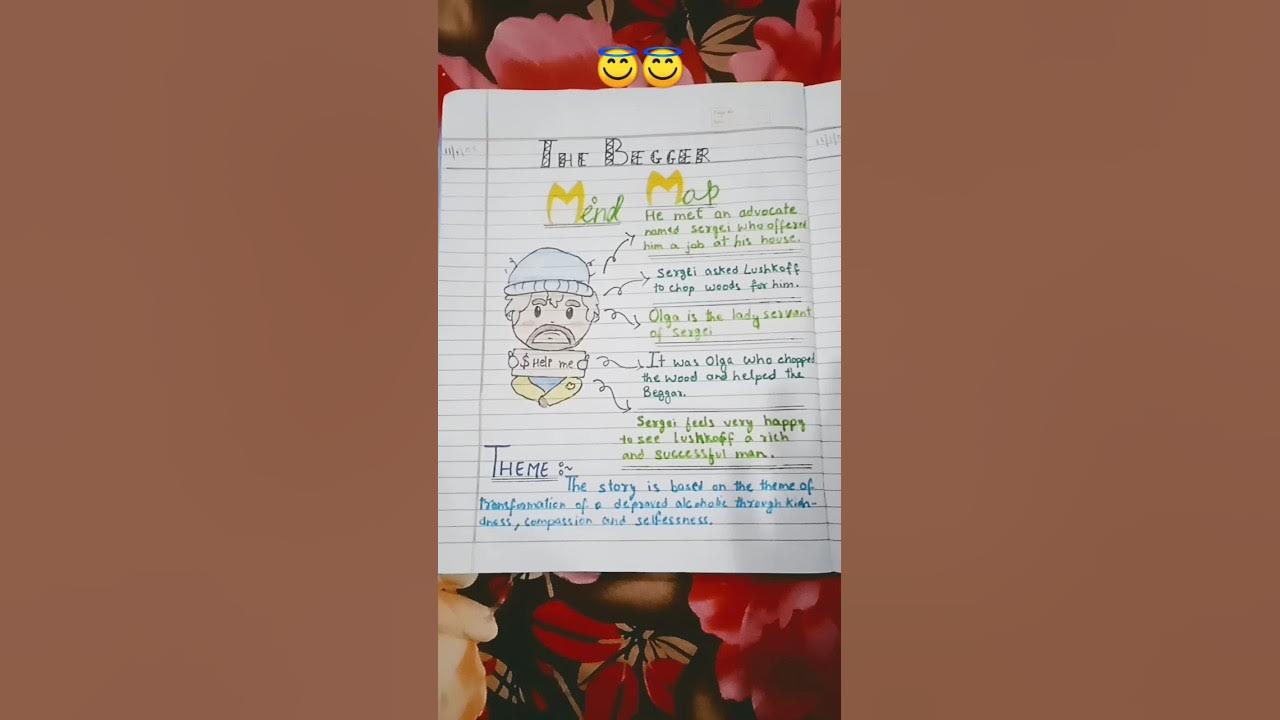 THE BEGGER
Mind Map
He met an advocate
named Sergei who offered
him a job at his house.
Sergei asked Lushkoff
to chop woods for him.
Olga is the lady servant
of Sergei
$ Help me
It was Olga who chopped
the wood and helped the
Beggar.
Sergei feels very happy
to see Lushkoff a rich
and successful man.
THEME :~
The story is based on the theme of
transformation of a depraved alcoholic through kin-
dness, compassion and selfessness.